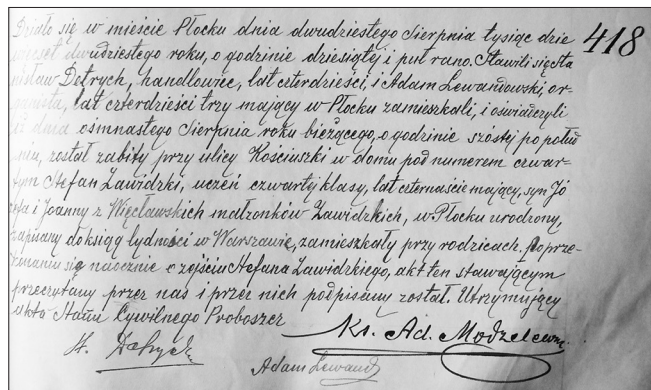 Działo się w mieście Płocku dnia dwudziestego Sierpnia tysiąc dzie
więset dwudziestego roku, o godzinie dziesiątej i puł rano. Stawili się Sta
nisław Detrych, handlowiec, lat czterdzieści, i Adam Lewandowski, or-
ganista, lat czterdzieści trzy mający w Płocku zamieszkali, i oświadczyli
iż dnia ośmnastego Sierpnia roku bieżącego, o godzinie szóstej po połud
niu, został zabity przy ulicy Kościuszki w domu pod numerem czwar-
tym Stefan Zawidzki, uczeń czwartej klasy, lat czternaście mający, syn Jó
zefa i Joanny z Więcławskich małżonków Zawidzkich, w Płocku urodzony,
zapisany do ksiąg ludności w Warszawie, zamieszkały przy rodzicach. Po prze-
konaniu się naocznie o zejściu Stefana Zawidzkiego, akt ten stawającym
przeczytany przez nas i przez nich podpisany został. Utrzymujący
akta Stanu Cywilnego Proboszcz
418
Ks. Ad. Modzelewski
Adam Lewand